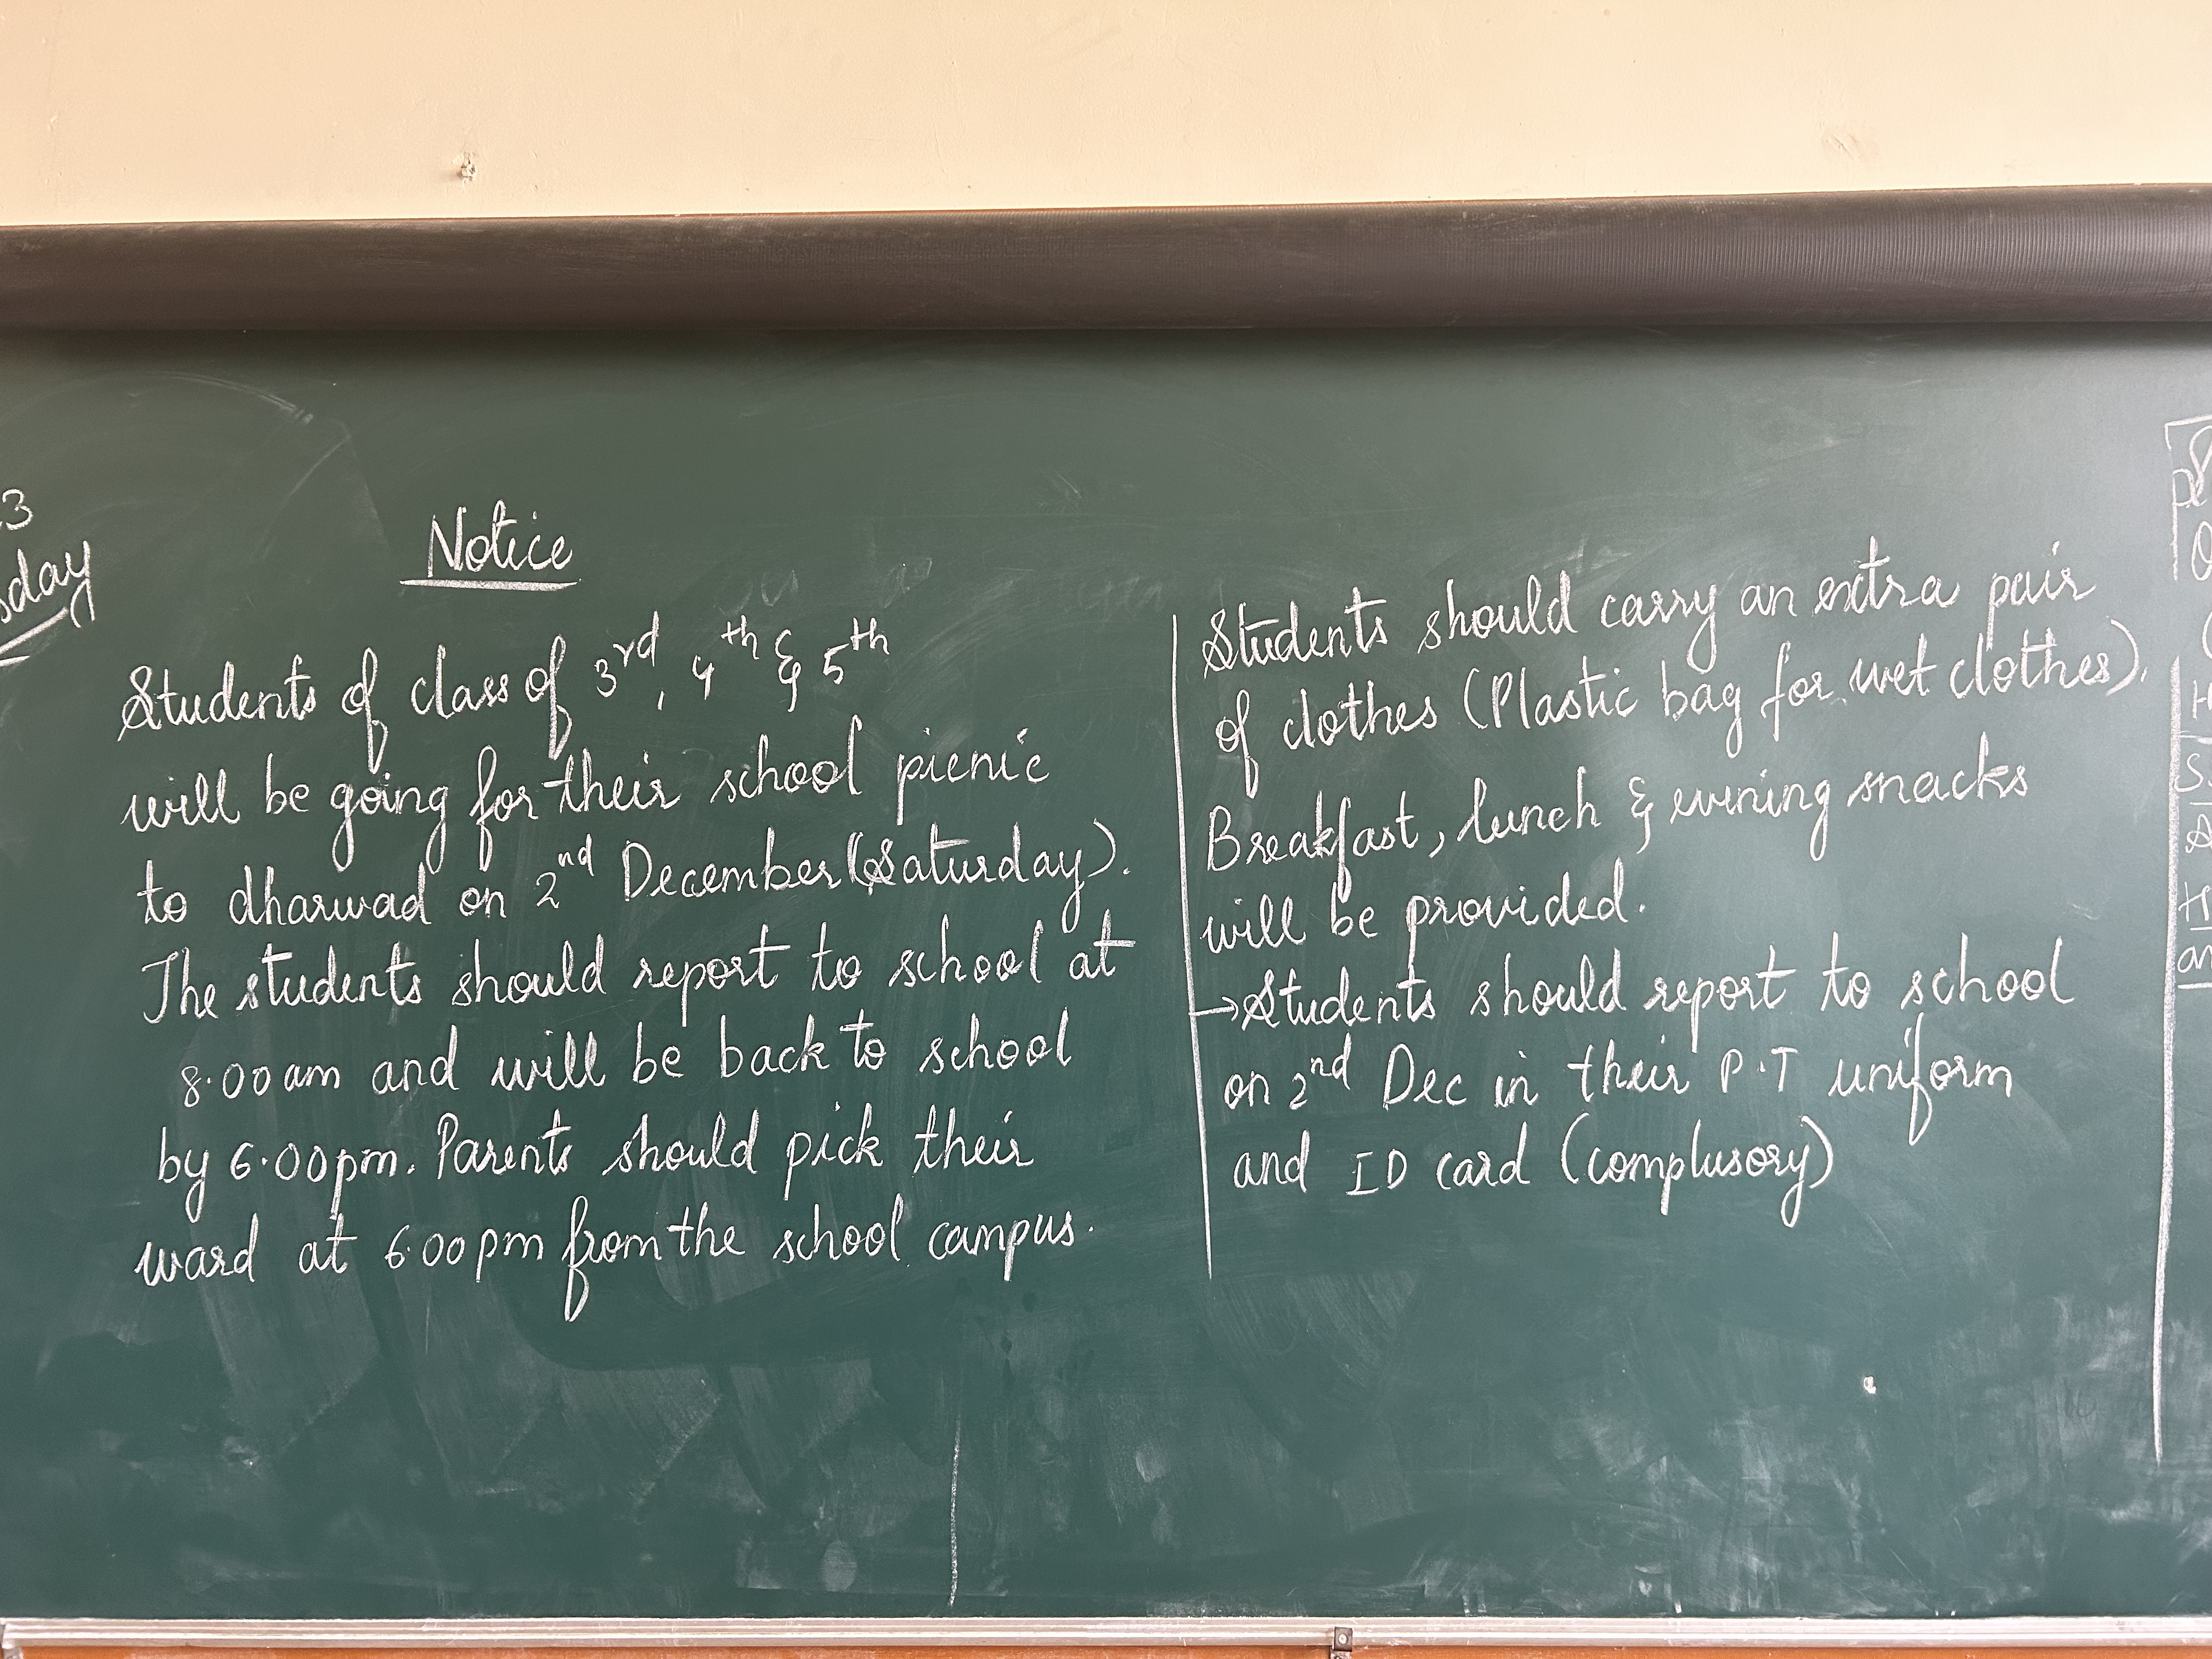 3
sday
Notice
Students of class of 3rd, 4th & 5th
will be going for their school picnic
to dharwad on 2nd December (Saturday).
The students should report to school at
8.00 am and will be back to school
by 6.00pm. Parents should pick their
ward at 6.00 pm from the school campus.
Students should carry an extra pair
of clothes (Plastic bag for wet clothes).
Breakfast, lunch & evening snacks
will be provided.
→ Students should report to school
on 2nd Dec in their P.T uniform
and ID card (complusory)